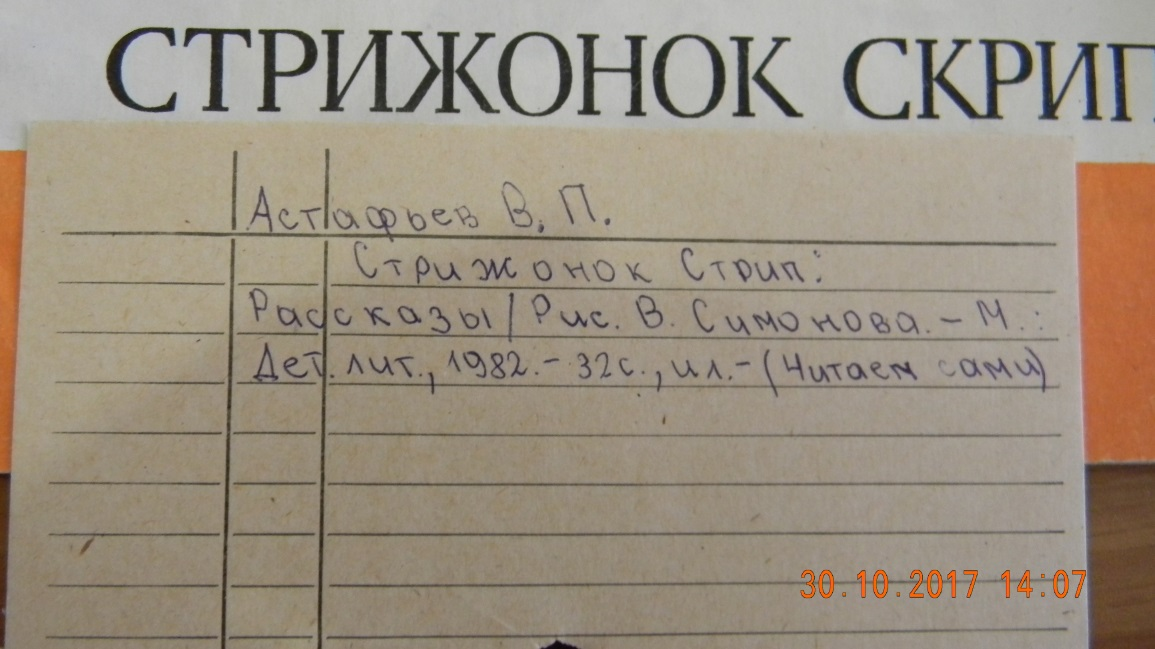 СТРИЖОНОК СКРИП
Астафьев В. П.
Стрижонок Стрип:
Рассказы / Рис. В. Симонова. – М.:
Дет. лит., 1982. – 32с., ил. – (Читаем сами)
30.10.2017 14:07